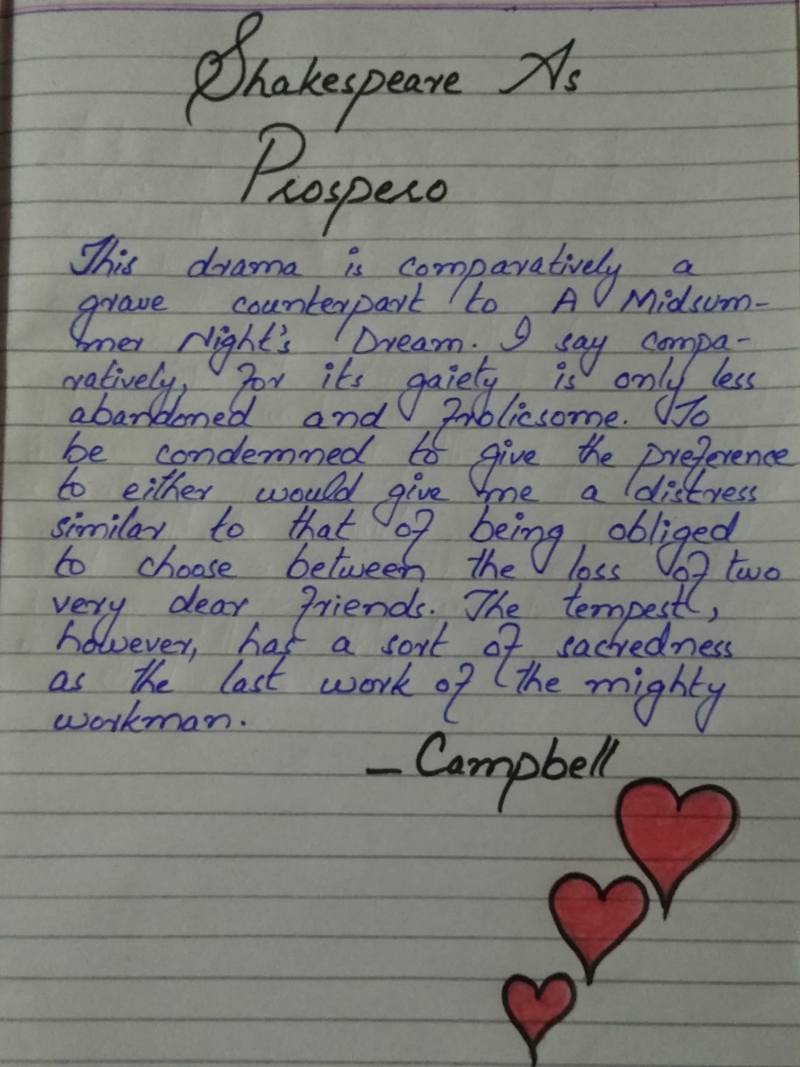 Shakespeare As
Prospero
This drama is comparatively a
grave counterpart to A Midsum-
mer Night's Dream. I say compa-
ratively, for its gaiety is only less
abandoned and frolicsome. To
be condemned to give the preference
to either would give me a distress
similar to that of being obliged
to choose between the loss of two
very dear friends. The tempest,
however, has a sort of sacredness
as the last work of the mighty
workman.
- Campbell